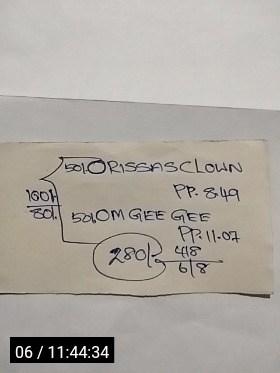 50/. ORISSASCLOWN
160/.
PP. 8.49
80/.
50/. OM GEE GEE
PP. 11-07
280/.
4/8
6/8
06 / 11:44:34